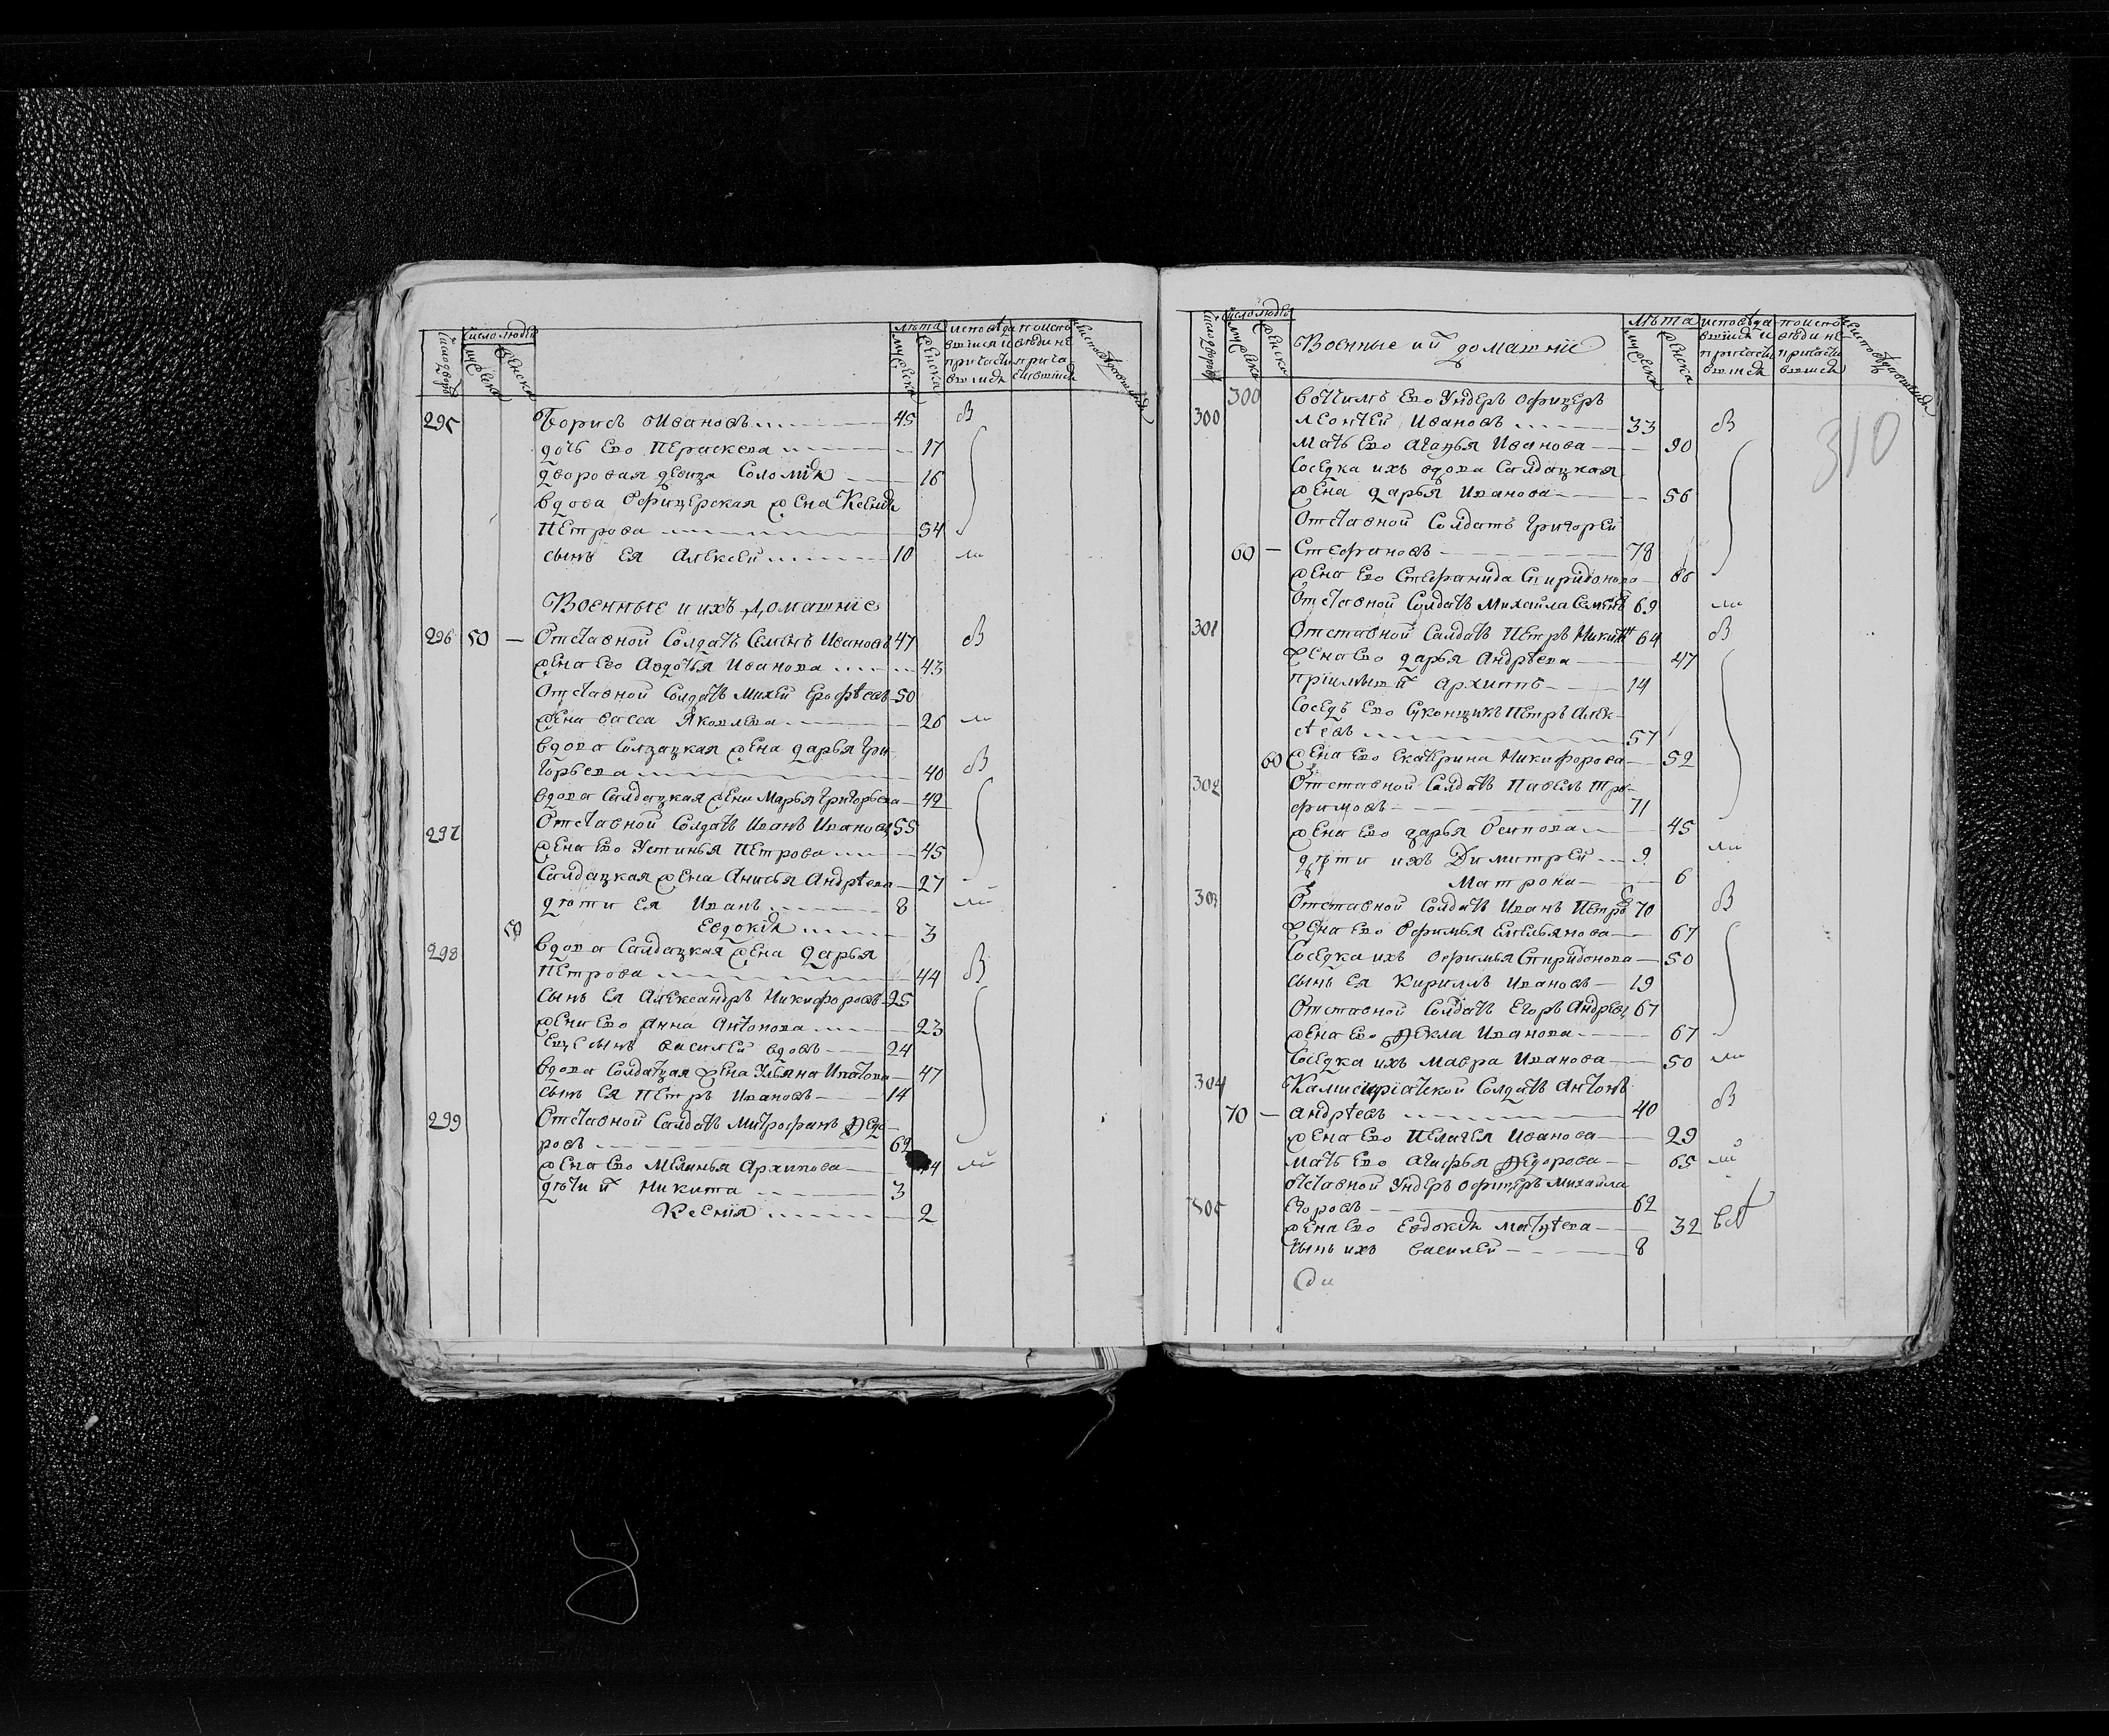 число дворовъ
число людей
мужеска
женска
лѣта
мужеска
женска
исповѣдавшихся и причастившихся
295 Борисъ Ивановъ 45 В
дочь Его Пераскева 17
дворовая девица Соломия 16
вдова Офицерская жена Ксения
Петрова 54
сынъ Ея Алексей 10
Военные и ихъ домашние
296 50 Отставной Солдатъ Семенъ Ивановъ 47 В
жена Ево Авдотья Иванова 43
Отставной Солдатъ Михей Ерофѣевъ 50
жена васса Яковлева 26
вдова Солдацкая жена дарья Гри-
горьева 40 В
вдова Салдацкая жена Марья Григорьева 42
297 Отставной Солдатъ Иванъ Ивановъ 55
жена Ево Устинья Петрова 45
Салдацкая жена Анисья Андрѣева 27
дѣти Ея Иванъ 8
50 Евдокия 3
298 вдова Салдацкая жена дарья
Петрова 44 В
сынъ Ея Александръ Никифоровъ 25
жена Ево Анна Антонова 23
Еще сынъ василей вдовъ 24
вдова Солдатцкая жена Ульяна Ипатова 47
сынъ Ея Петръ Ивановъ 14
299 Отставной Салдатъ Митрофанъ Федо-
ровъ 62
жена Ево Меланья Архипова 44
дѣти й Никита 3
Ксения 2
число дворовъ
число людей
мужеска
женска
Военные ий домашние
лѣта
мужеска
женска
310
300 вотчимъ Ево Ундеръ офицеръ
300 леонтей Ивановъ 33 В
мать Ево Аганья Иванова 90
Соседка ихъ вдова Салдацкая
жена дарья Иванова 56
Отставной Солдатъ Григорей
60 Стефановъ 78
жена Ево Стефанида Спиридонова 66
Отставной Солдатъ Михайла Семенъ 69
301 Отставной Салдатъ Петръ Никит 64 В
жена Ево дарья Андрѣева 47
приимышъ й архиппъ 14
Соседъ Ево Суконщикъ Петръ Алек-
сѣевъ 57
60 жена Ево Екатерина Никифорова 52
302 Отставной Салдатъ Павелъ Тро-
фимовъ 71
жена Ево дарья Осипова 45
дѣти ихъ Димитрей 9
Матрона 6
303 Отставной Солдатъ Иванъ Петро 70 В
жена Ево Офимья Емельянова 67
Соседка ихъ Офимья Спиридонова 50
сынъ Ея Кириллъ Ивановъ 19
Отставной Солдатъ Егоръ Андрѣевъ 67
жена Ево Фекла Иванова 67
Соседка ихъ Мавра Иванова 50
304 Камисариатской Солдатъ Антонъ
70 Андрѣевъ 40 В
жена Ево Пелагея Иванова 29
мать Ево Агафья Федорова 65
отставной Ундеръ Офицеръ Михайла
305 Егоровъ 62
жена Ево Евдокия матвѣева 32 всѣ
сынъ ихъ Василей 8